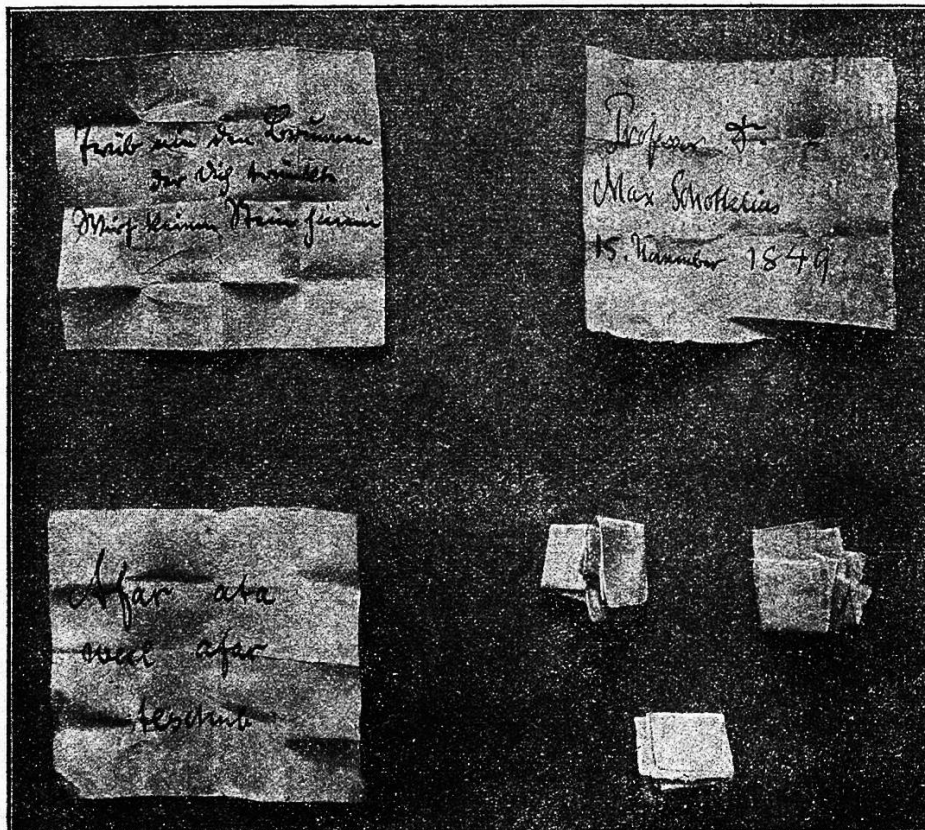 Trüb nie den Brunnen
der Dich tränkte
Wirf keinen Stein hinein
Professor Dr.
Max Schottelius
15. November 1849
Afar ata
weel afar
teschub